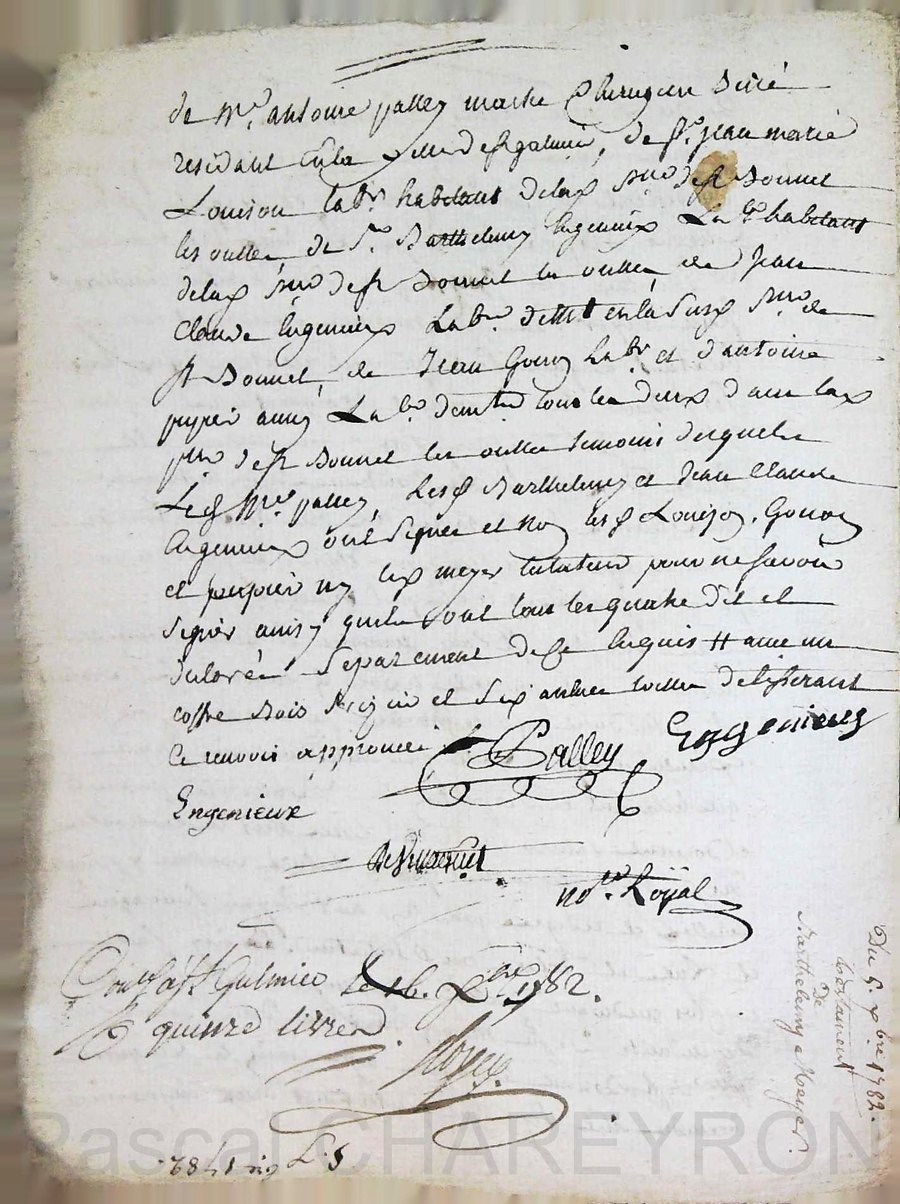 de Mre antoine palley maitre Chirurgien Juré
residant en la ville de st galmier, de sr. jean marie
Louison labr habitant de lad. prre de st Bonnet
les oulles de sr. Barthelemy Engenieux Labr habitant
de lad. prre de st Bonnet les oulles de Jean
Claude Engenieux Labr demt en la susd. prre de
st Bonnet, de Jean Gonon Labr et d'antoine
peyrier aussy Labr demeurant tous les deux dans lad.
prre de st Bonnet les oulles temoins desquels
Led. Mre palley, lesd. Barthelemy et Jean Claude
Engenieux ont signé et non lesd. Louison, Gonon
et peyrier ny led. meyer testateur pour ne savoir
signer ainsy quils ont tous les quatre dit et
declaré separement de ce enquis # avec un
coffre bois sapin et six aulnes toille
Ce renvoi approuvé Palley Engenieux
Engenieux
nore. Royal
Con.lé a St Galmier le 16. Xbre 1782.
R quinze livres
Du 5. Xbre 1782.
testament
De
Barthelemy Meyer
5 Xbre 1782
Pascal CHAREYRON